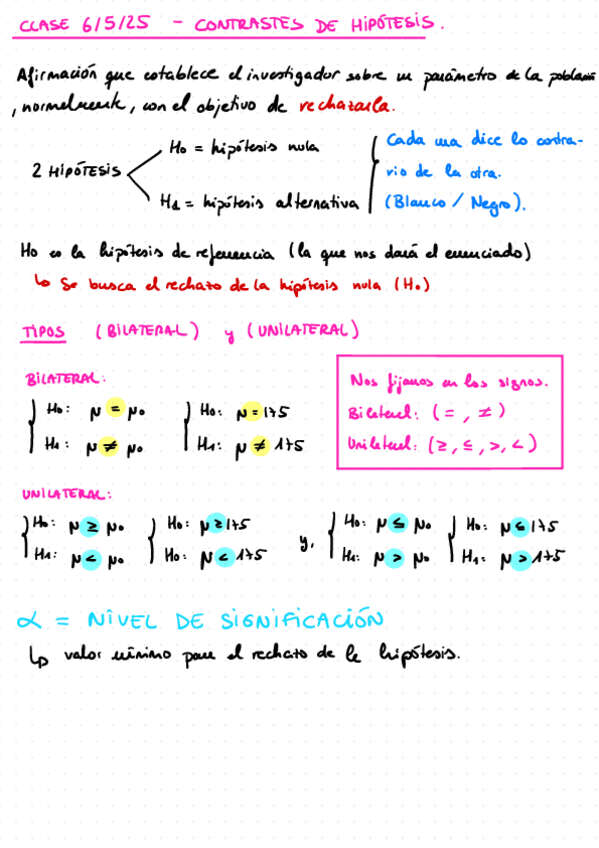 CLASE 6/5/25 - CONTRASTES DE HIPÓTESIS.
Afirmación que establece el investigador sobre un parámetro de la población
, normalmente, con el objetivo de rechazarla.
2 HIPÓTESIS
H0 = hipótesis nula
H1 = hipótesis alternativa
Cada una dice lo contra-
rio de la otra.
(Blanco / Negro).
H0 es la hipótesis de referencia (la que nos dará el enunciado)
↳ Se busca el rechazo de la hipótesis nula (H0)
TIPOS (BILATERAL) y (UNILATERAL)
BILATERAL:
H0: μ = μ0 H0: μ = 175
H1: μ ≠ μ0 H1: μ ≠ 175
Nos fijamos en los signos.
Bilateral: (=, ≠)
Unilateral: (≥, ≤, >, <)
UNILATERAL:
H0: μ ≥ μ0 H0: μ ≥ 175 y, H0: μ ≤ μ0 H0: μ ≤ 175
H1: μ < μ0 H0: μ < 175 H1: μ > μ0 H1: μ > 175
α = NIVEL DE SIGNIFICACIÓN
↳ valor mínimo para el rechazo de la hipótesis.